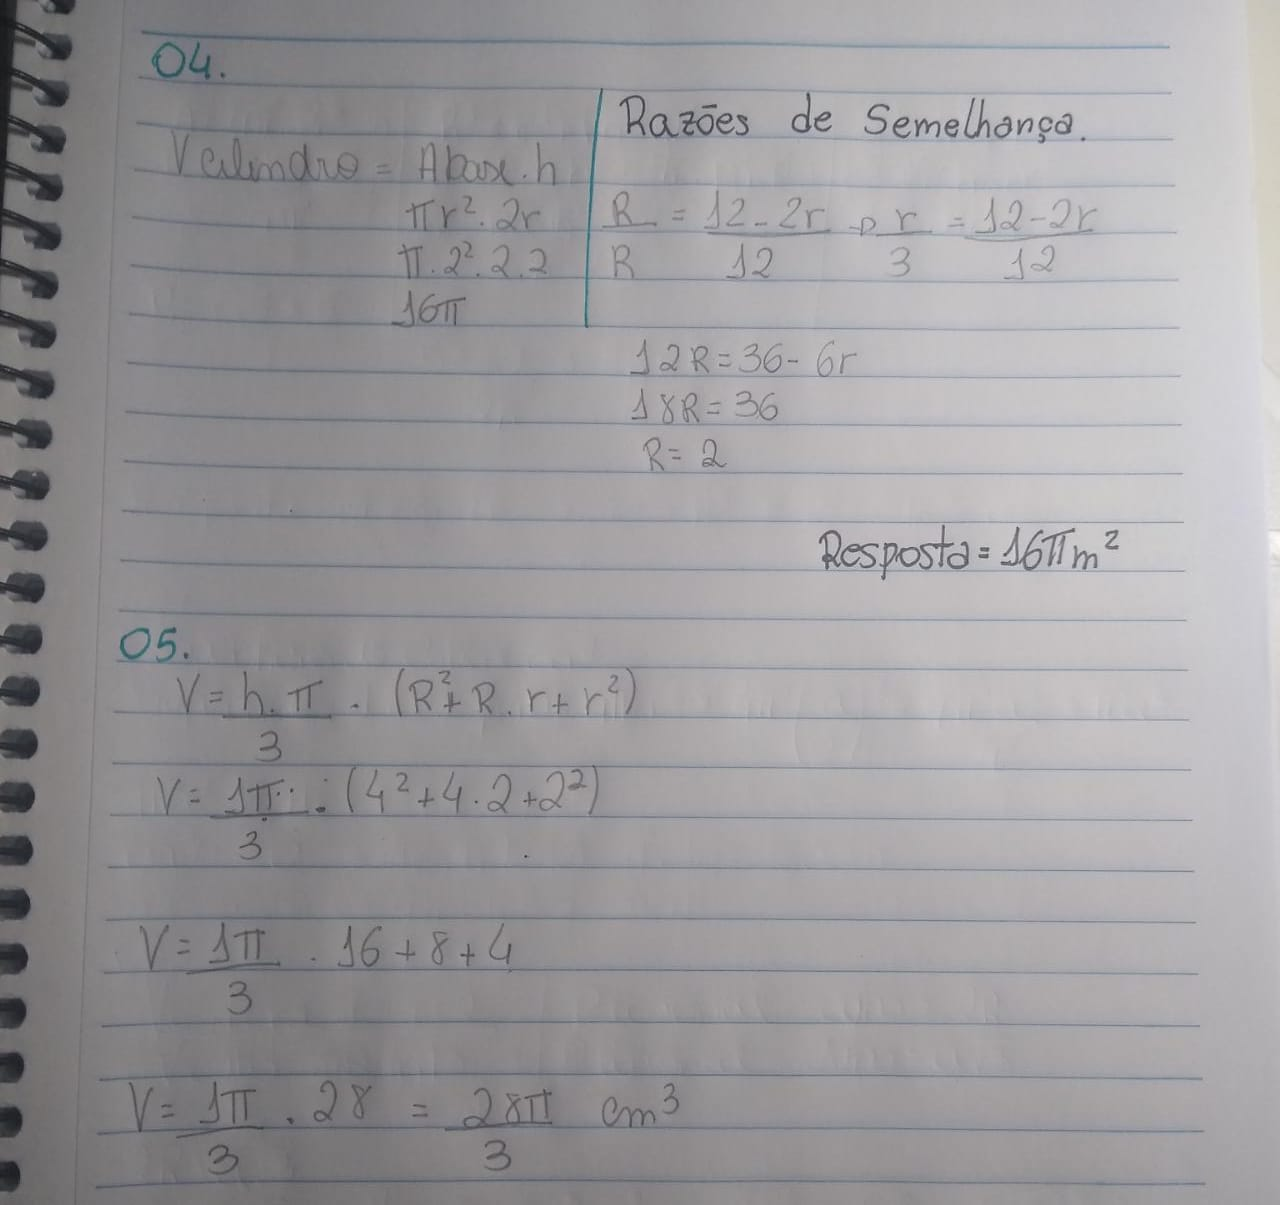 04.
Vcilindro = Abase.h
πr². 2r
π.2².2.2
16π
Razões de Semelhança.
R/R = 12-2r/12 → r/3 = 12-2r/12
12R = 36 - 6r
18R = 36
R = 2
Resposta = 16πm²
05.
V = h.π/3 . (R²+R.r+r²)
V = 1π/3 . (4²+4.2+2²)
V = 1π/3 . 16+8+4
V = 1π/3 . 28 = 28π/3 cm³